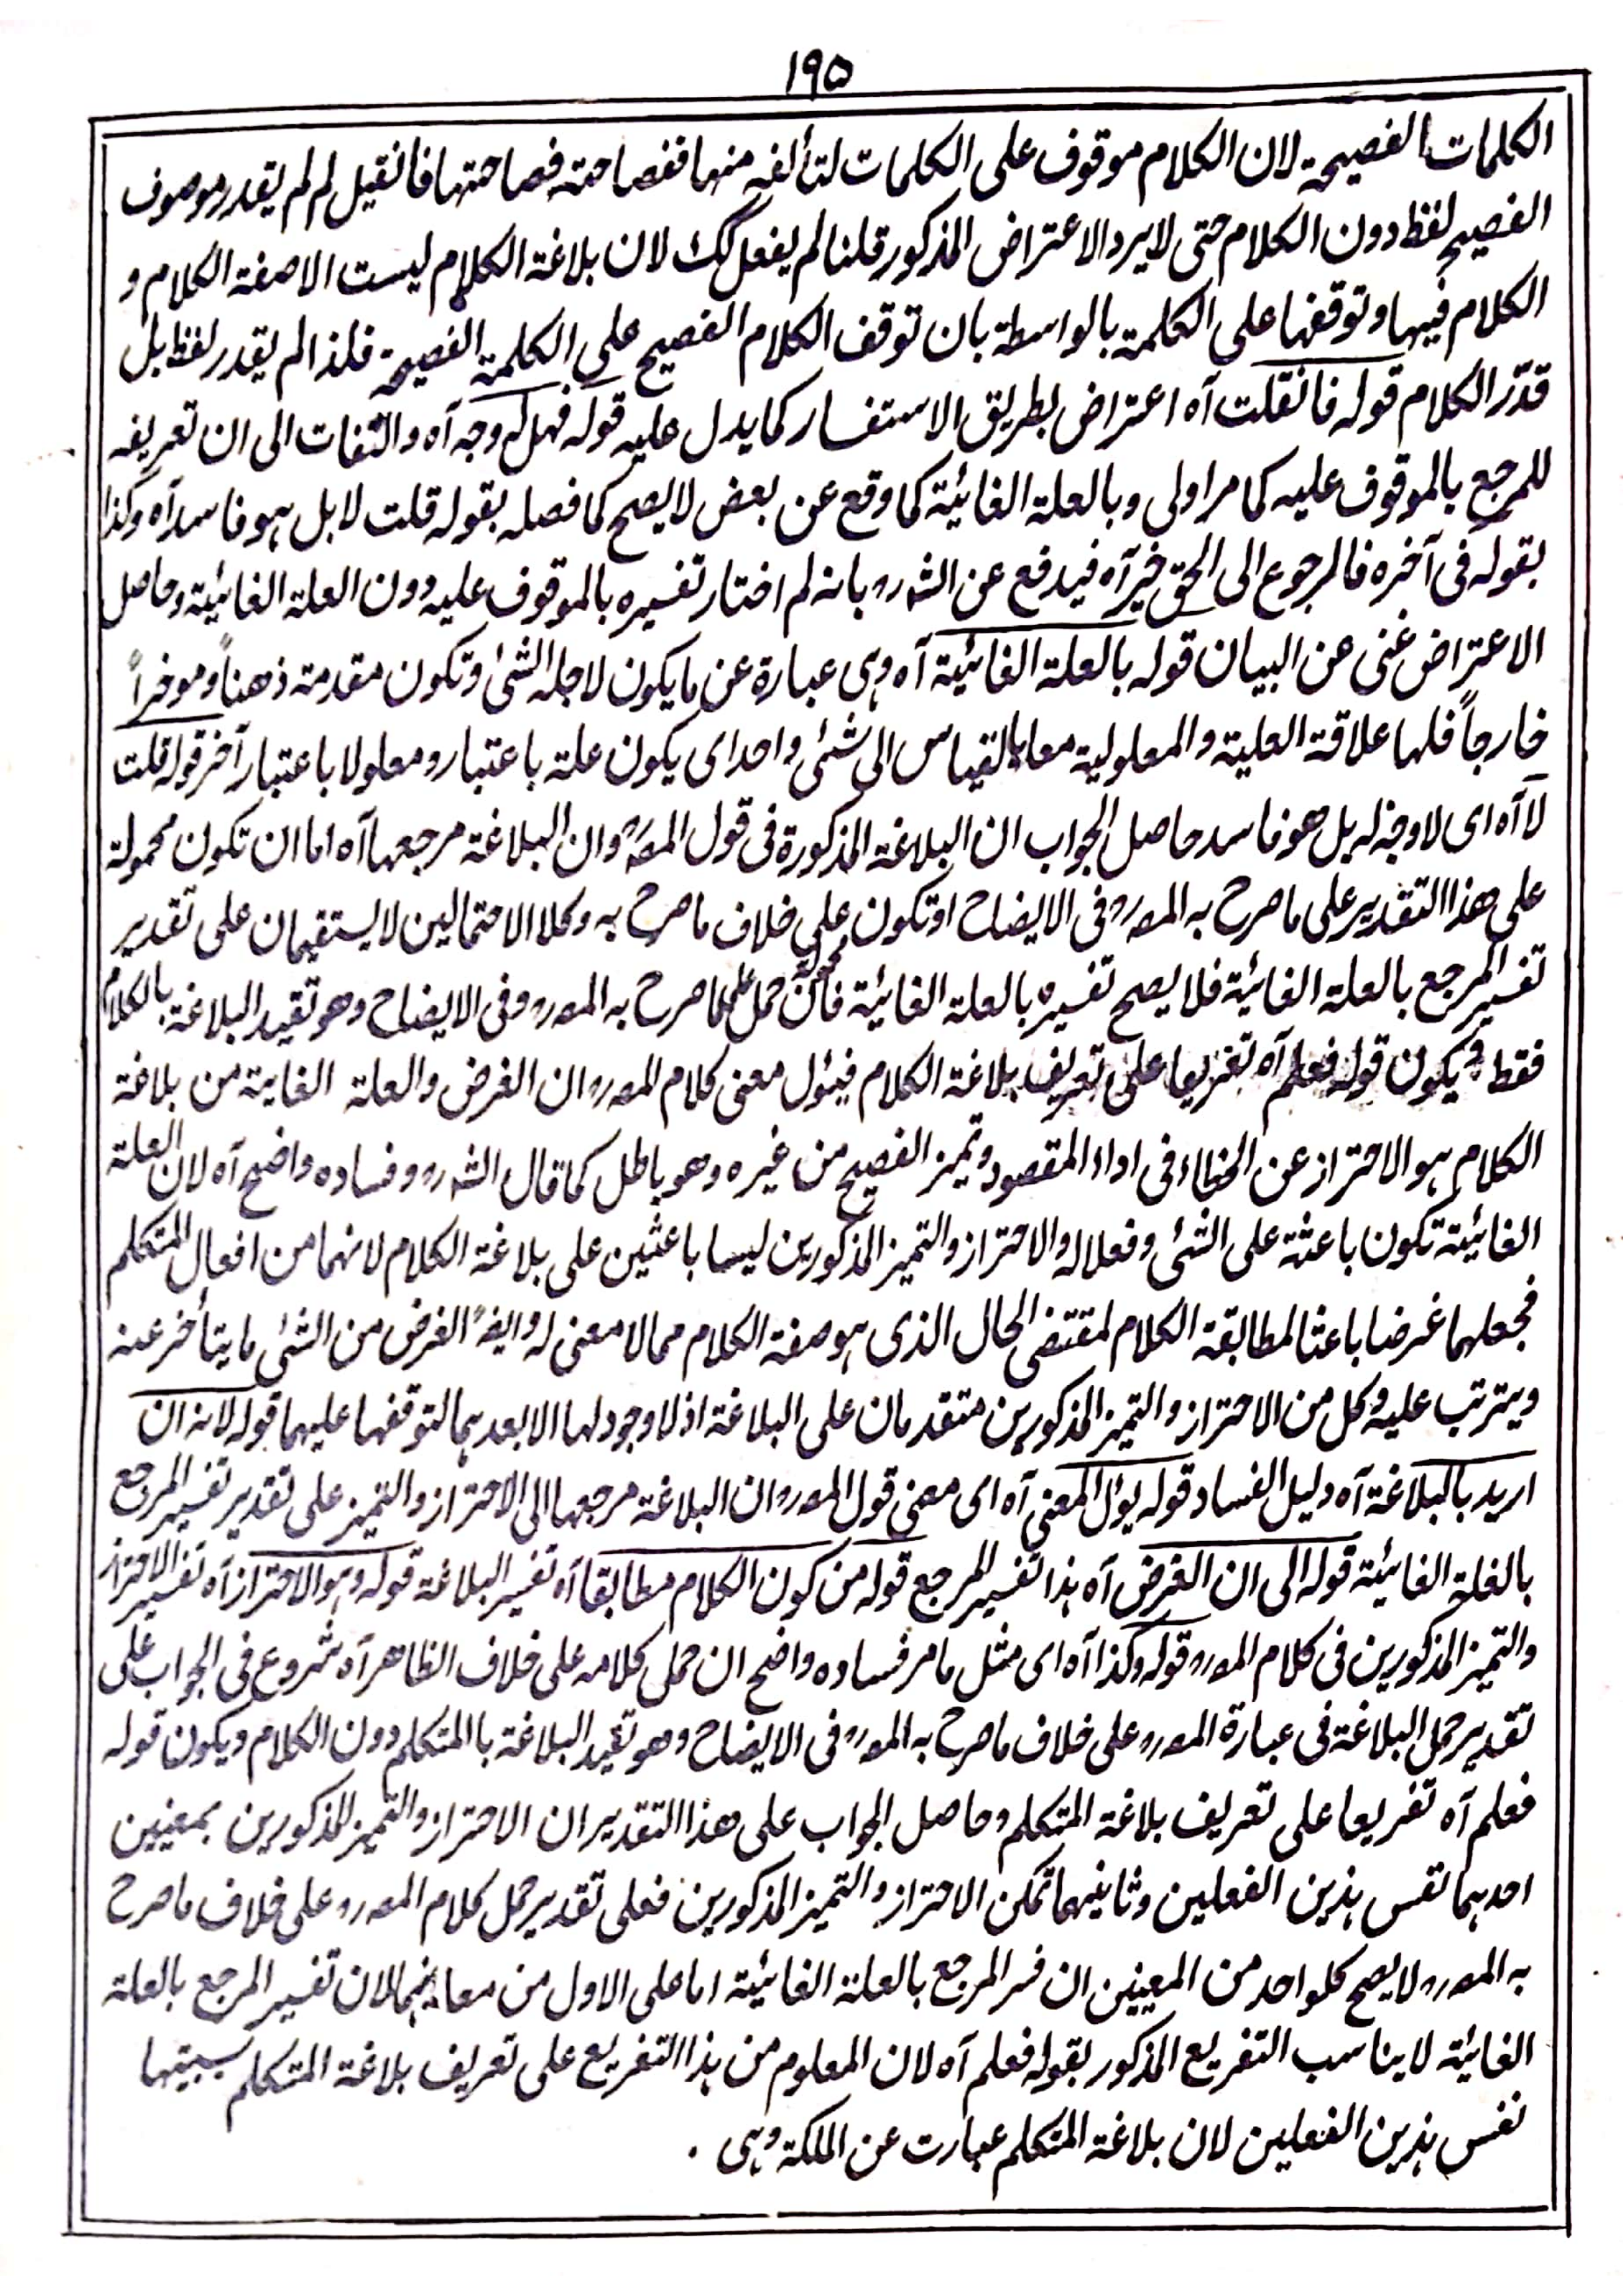 ١٩٥
الكلمات الفصيحة لان الكلام موقوف على الكلمات لتألفه منها ففصاحته فصاحتها فانقيل لم لم يقدر موصوف
الفصيح لفظ دون الكلام حتى لا يرد الاعتراض المذكور قلنا لم يفعل كك لان بلاغة الكلام ليست الا صفة الكلام و
الكلام فيها وتوقفها على الكلمة بالواسطة بان توقف الكلام الفصيح على الكلمة الفصيحة فلذا لم يقدر لفظ بل
قدّر الكلام قوله فانقلت آه اعتراض بطريق الاستفسار كما يدل عليه قوله فهل له وجه آه والتفات الى ان تعريفه
للمرجع بالموقوف عليه كما مر اولى وبالعلة الغائية كما وقع عن بعض لا يصح كما فصله بقوله قلت لا بل هو فاسد آه وكذا
بقوله فى آخره فالرجوع الى الحق خير آه فيدفع عن الشه رہ بانه لم اختار تفسيره بالموقوف عليه دون العلة الغائية وحاصل
الاعتراض غنى عن البيان قوله بالعلة الغائية آه وهى عبارة عن ما يكون لاجله الشئ وتكون مقدمة ذهناً وموخراً
خارجاً فلها علاقة العلية والمعلولية معا بالقياس الى شئ واحد اى يكون علة باعتبار ومعلولا باعتبار آخر قوله قلت
لا آه اى لا وجه له بل هو فاسد حاصل الجواب ان البلاغة المذكورة فى قول المصہ وان البلاغة مرجعها آه اما ان تكون محمولة
على هذا التقدير على ما صرح به المصہ رہ فى الايضاح او تكون على خلاف ما صرح به وكلا الاحتمالين لا يستقيمان على تقدير
تفسير المرجع بالعلة الغائية فلا يصح تفسيره بالعلة الغائية فان حمل على ما صرح به المصہ رہ فى الايضاح وهو تقييد البلاغة بالكلام
فقط ويكون قوله فعلم آه تفريعا على تعريف بلاغة الكلام فيئول معنى كلام المصہ رہ ان الغرض والعلة الغائية من بلاغة
الكلام هو الاحتراز عن الخطاء فى اداء المقصود وتميز الفصيح من غيره وهو باطل كما قال الشہ رہ وفساده واضح آه لان العلة
الغائية تكون باعثة على الشئ وفعلا له والاحتراز والتميز المذكورين ليسا باعثين على بلاغة الكلام لانهما من افعال المتكلم
فجعلهما غرضا باعثا لمطابقة الكلام لمقتضى الحال الذى هو صفة الكلام مما لا معنى له وايضہ الغرض من الشئ ما يتأخر عنه
ويترتب عليه وكل من الاحتراز والتميز المذكورين متقدمان على البلاغة اذ لا وجود لها الا بعد هما لتوقفها عليهما قوله لانه ان
اريد بالبلاغة آه دليل الفساد قوله يؤل المعنى آه اى معنى قول المصہ رہ ان البلاغة مرجعها الى الاحتراز والتميز على تقدير تفسير المرجع
بالعلة الغائية قوله الى ان الغرض آه هذا تفسير المرجع قوله من كون الكلام مطابقا آه تفسير البلاغة قوله وهو الاحتراز آه تفسير الاحتراز
والتميز المذكورين فى كلام المصہ رہ قوله وكذا آه اى مثل ما مر فساده واضح ان حمل كلامه على خلاف الظاهر آه شروع فى الجواب على
تقدير حمل البلاغة فى عبارة المصہ رہ على خلاف ما صرح به المصہ رہ فى الايضاح وهو تقييد البلاغة بالمتكلم دون الكلام ويكون قوله
فعلم آه تفريعا على تعريف بلاغة المتكلم وحاصل الجواب على هذا التقدير ان الاحتراز والتميز المذكورين بمعنيين
احدهما نفس هذين الفعلين وثانيهما تمكن الاحتراز والتميز المذكورين فعلى تقدير حمل كلام المصہ رہ على خلاف ما صرح
به المصہ رہ لا يصح كلواحد من المعنيين ان فسر المرجع بالعلة الغائية اما على الاول من معانيهما لان تفسير المرجع بالعلة
الغائية لا يناسب التفريع المذكور بقوله فعلم آه لان المعلوم من هذا التفريع على تعريف بلاغة المتكلم سببيتها
نفس هذين الفعلين لان بلاغة المتكلم عبارت عن الملكة وهى .